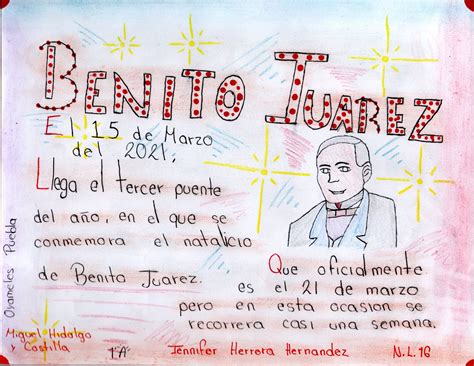 BENITO JUAREZ
El 15 de Marzo
del 2021,
Llega el tercer puente
del año, en el que se
conmemora el natalicio
de Benito Juarez.
Que oficialmente
es el 21 de marzo
pero en esta ocasion se
recorrera casi una semana.
Oyameles Puebla
Miguel Hidalgo
y Costilla
1°A
Jennifer Herrera Hernandez
N.L.16